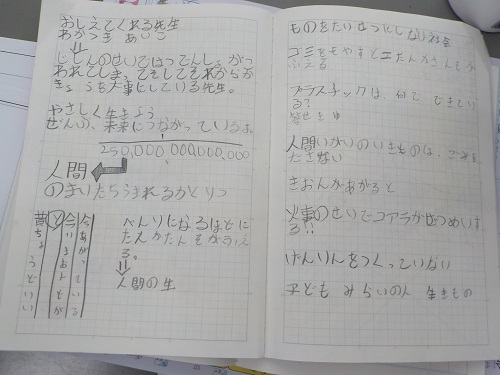 おしえてくれる先生
わかつき あいこ
じしんのせいではってんしょがつ
われてしま、てもしてもそれからがっ
きょうを大事にしている先生。
やさしく生きよう
ぜんぶ、未来につながっているよ
250,000,000,000,000
人間
のまいたらうまれるかくりつ
べんりになるほどに
たんかたんもがふえ
る。
人間の生
今あがっている
昔ちょうどいい
ものをたいせつにしない社会
ゴミをもやすと二たんかさんそが
ふえる
プラスチックは、何で できてい
る?
人間いがいのいきものは、ごみを
ださない
きおんがあがると
火事のせいでコアラがぜつめいす
る!!
げんりんをつくっていない
子ども みらいの人 生きもの